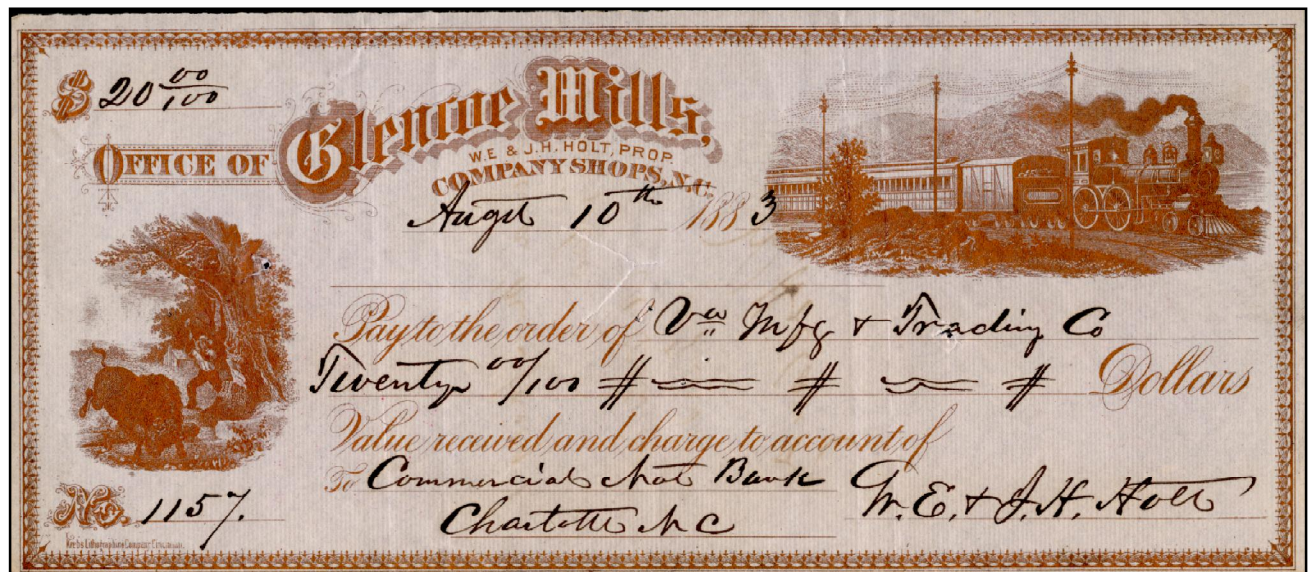 $ 20 00/100
OFFICE OF Glencoe Mills,
W.E & J.H. HOLT, PROP.
COMPANY SHOPS, N.C.
Augst 10th 1883
Pay to the order of Va Mfg & Trading Co
Twenty 00/100 # # # Dollars
Value received and charge to account of
To Commercial Nat Bank
Charlotte N C
W. E. & J. H. Holt
No. 1157.
Krebs Lithographing Company Cincinnati